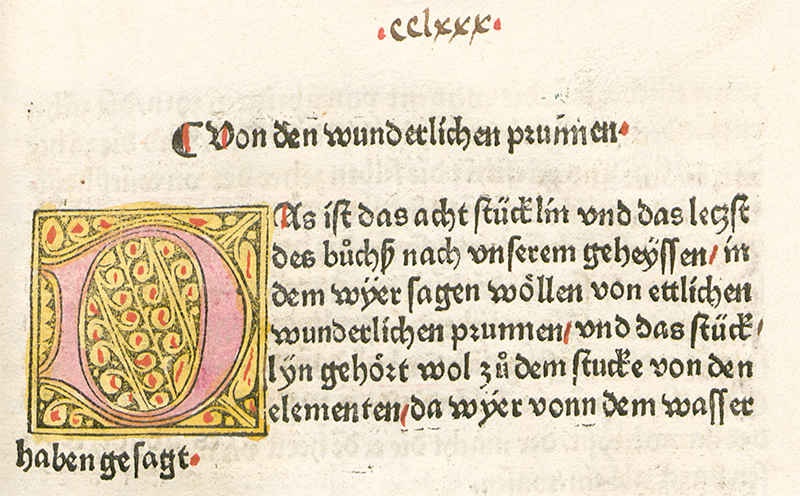 ·cclxxx·
¶ Von den wunderlichen prunnen·
DAs ist das acht stücklin vnd das letzst
des bůchß nach vnserem geheyssen/ in
dem wÿer sagen wöllen von ettlichen
wunderlichen prunnen/ vnd das stück/
lÿn gehört wol zů dem stucke von den
elementen/ da wÿer vonn dem wasser
haben gesagt·